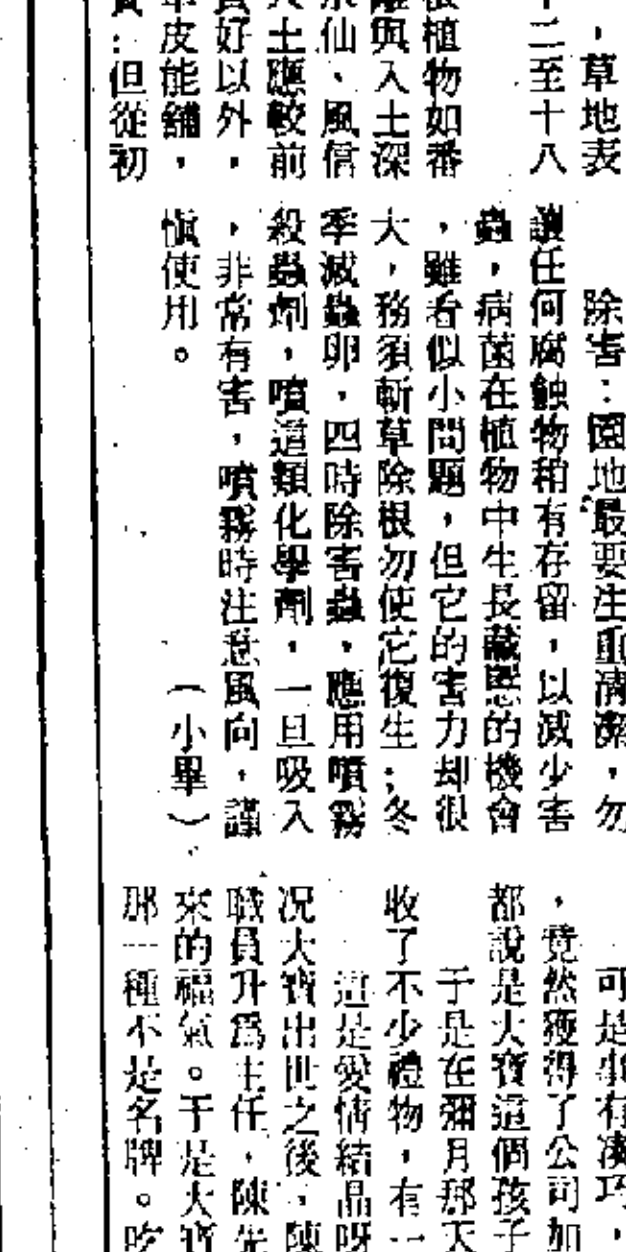 ，草地表
十二至十八
根植物如番
離與入土深
水仙、風信
入土應較前
良好以外，
草皮能舖，
質：但從初
除害：園地最要注重清潔，勿
讓任何腐蝕物稍有存留，以減少害
蟲，病菌在植物中生長藏匿的機會
，雖看似小問題，但它的害力却很
大，務須斬草除根勿使它復生；冬
季滅蟲卵，四時除害蟲，應用噴霧
殺蟲劑，噴這類化學劑，一旦吸入
，非常有害，噴霧時注意風向，謹
愼使用。
（小畢）
可是事有凑巧，
，竟然獲得了公司加
都說是大寶這個孩子
于是在彌月那天
收了不少禮物，有一
這是愛情結晶呀
况大寶出世之後，陳
職員升爲主任，陳先
來的福氣。于是大寶
那一種不是名牌。吃